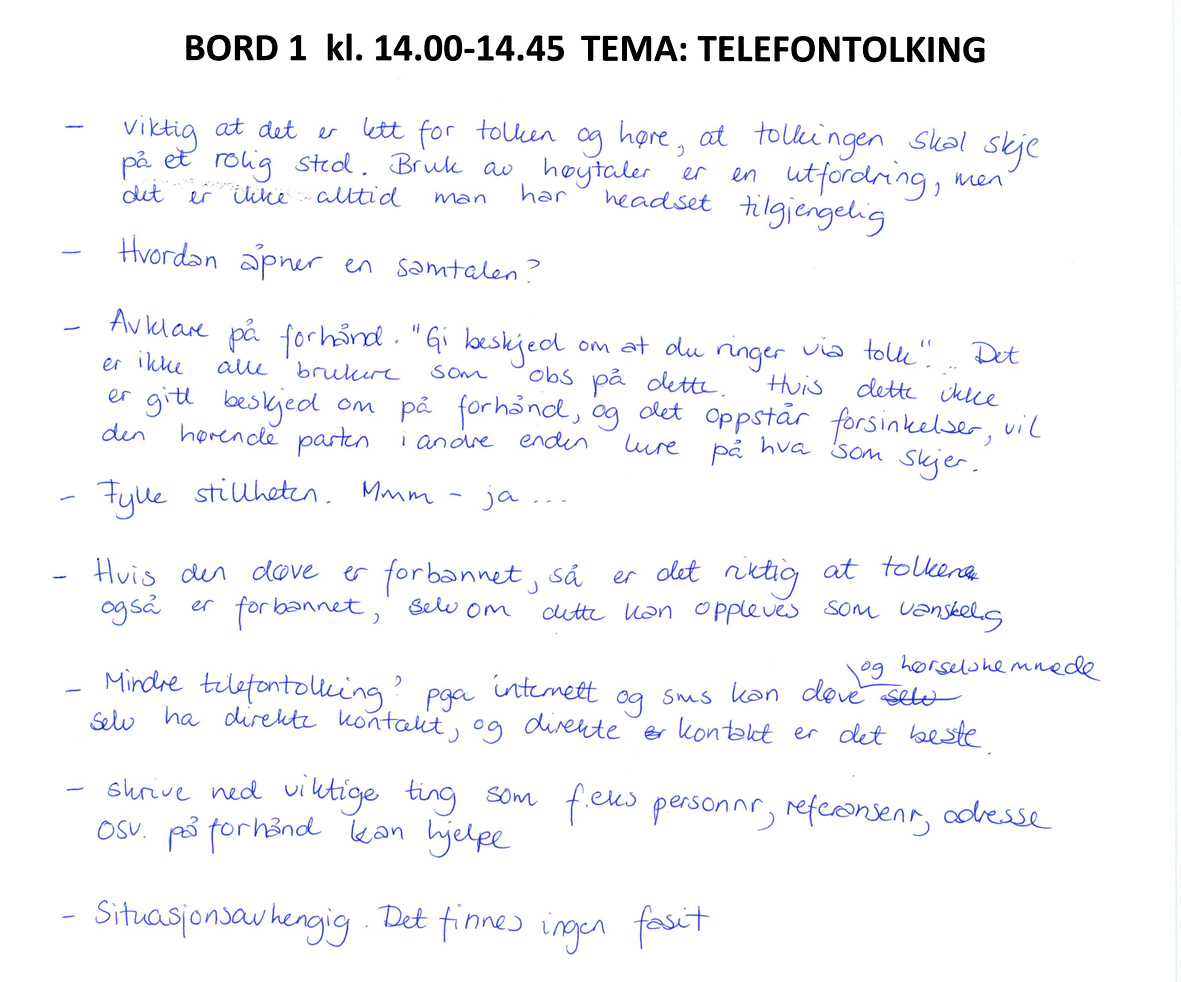 BORD 1 kl. 14.00-14.45 TEMA: TELEFONTOLKING
- viktig at det er lett for tolken og høre, at tolkingen skal skje
på et rolig sted. Bruk av høytaler er en utfordring, men
det er ikke alltid man har headset tilgjengelig
- Hvordan åpner en samtalen?
- Avklare på forhånd. "Gi beskjed om at du ringer via tolk". Det
er ikke alle brukere som obs på dette. Hvis dette ikke
er gitt beskjed om på forhånd, og det oppstår forsinkelser, vil
den hørende parten i andre enden lure på hva som skjer.
- Fylle stillheten. Mmm - ja ...
- Hvis den døve er forbannet, så er det riktig at tolken
også er forbannet, selv om dette kan oppleves som vanskelig
og hørselshemmede
- Mindre telefontolking? pga internett og sms kan døve selv
selv ha direkte kontakt, og direkte kontakt er det beste.
- skrive ned viktige ting som f.eks personnr, referansenr, adresse
osv. på forhånd kan hjelpe
- Situasjonsavhengig. Det finnes ingen fasit